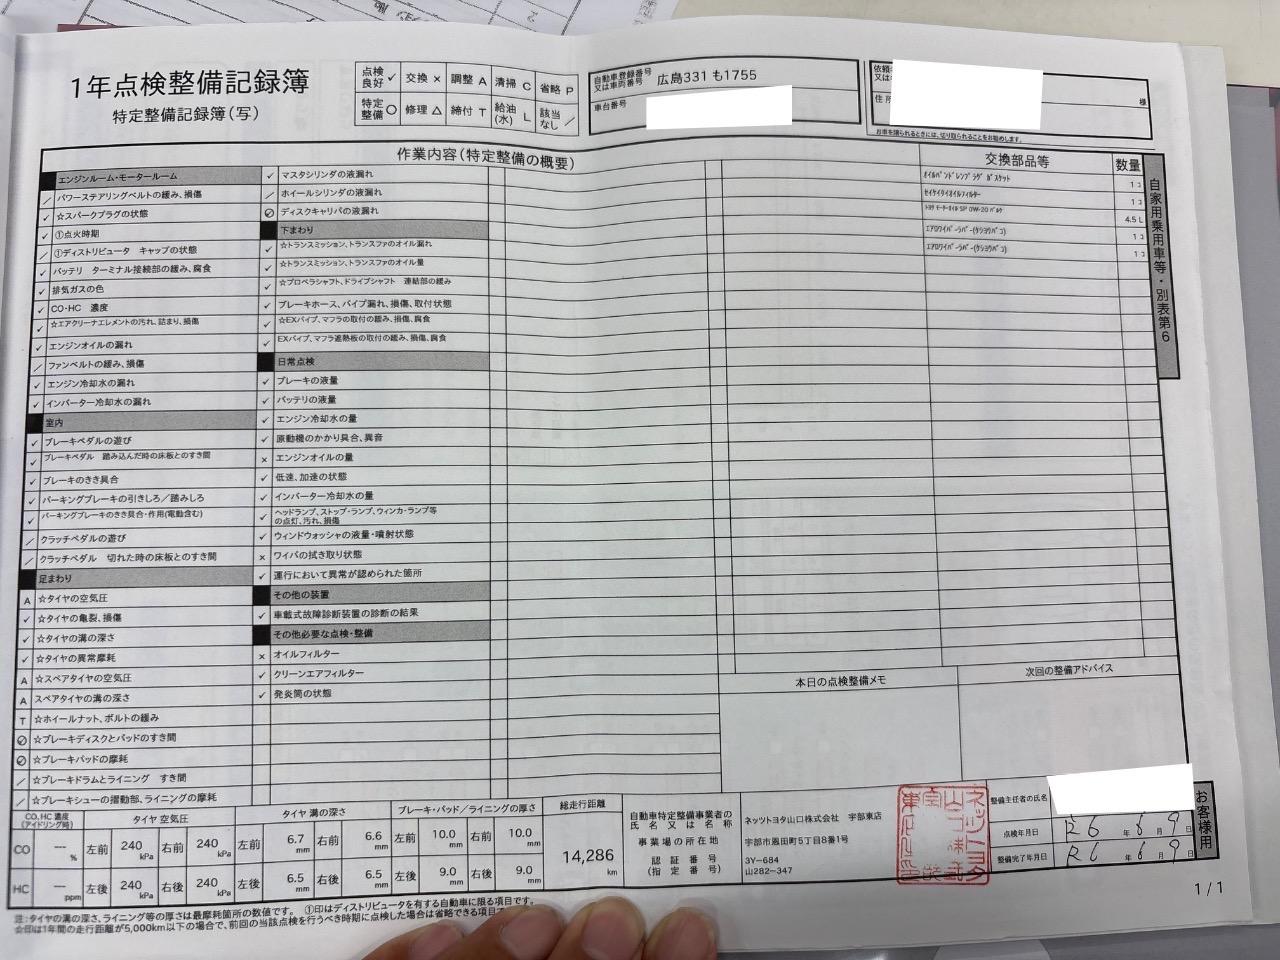 1年点検整備記録簿
特定整備記録簿(写)
点検良好 ✓ 交換 × 調整 A 清掃 C 省略 P
特定整備 ○ 修理 △ 締付 T 給油(水) L 該当なし ／
自動車登録番号又は車両番号 広島331も1755
車台番号
様
お車を譲られるときには、切り取られることをお勧めします。
作業内容(特定整備の概要)
エンジンルーム・モータールーム
／ パワーステアリングベルトの緩み、損傷
✓ ☆スパークプラグの状態
✓ ①点火時期
／ ①ディストリビュータ キャップの状態
✓ バッテリ ターミナル接続部の緩み、腐食
✓ 排気ガスの色
✓ CO・HC 濃度
✓ ☆エアクリーナエレメントの汚れ、詰まり、損傷
✓ エンジンオイルの漏れ
／ ファンベルトの緩み、損傷
✓ エンジン冷却水の漏れ
✓ インバーター冷却水の漏れ
室内
✓ ブレーキペダルの遊び
✓ ブレーキペダル 踏み込んだ時の床板とのすき間
✓ ブレーキのきき具合
✓ パーキングブレーキの引きしろ／踏みしろ
✓ パーキングブレーキのきき具合・作用(電動含む)
／ クラッチペダルの遊び
／ クラッチペダル 切れた時の床板とのすき間
足まわり
A ☆タイヤの空気圧
✓ ☆タイヤの亀裂、損傷
✓ ☆タイヤの溝の深さ
✓ ☆タイヤの異常摩耗
A ☆スペアタイヤの空気圧
A スペアタイヤの溝の深さ
T ☆ホイールナット、ボルトの緩み
⊘ ☆ブレーキディスクとパッドのすき間
⊘ ☆ブレーキパッドの摩耗
／ ☆ブレーキドラムとライニング すき間
／ ☆ブレーキシューの摺動部、ライニングの摩耗
✓ マスタシリンダの液漏れ
／ ホイールシリンダの液漏れ
⊘ ディスクキャリパの液漏れ
下まわり
✓ ☆トランスミッション、トランスファのオイル漏れ
✓ ☆トランスミッション、トランスファのオイル量
✓ ☆プロペラシャフト、ドライブシャフト 連結部の緩み
✓ ブレーキホース、パイプ漏れ、損傷、取付状態
✓ ☆EXパイプ、マフラの取付の緩み、損傷、腐食
✓ EXパイプ、マフラ遮熱板の取付の緩み、損傷、腐食
日常点検
✓ ブレーキの液量
✓ バッテリの液量
✓ エンジン冷却水の量
✓ 原動機のかかり具合、異音
× エンジンオイルの量
✓ 低速、加速の状態
✓ インバーター冷却水の量
✓ ヘッドランプ、ストップ・ランプ、ウィンカ・ランプ等の点灯、汚れ、損傷
✓ ウィンドウォッシャの液量・噴射状態
× ワイパの拭き取り状態
✓ 運行において異常が認められた箇所
その他の装置
✓ 車載式故障診断装置の診断の結果
その他必要な点検・整備
× オイルフィルター
✓ クリーンエアフィルター
✓ 発炎筒の状態
交換部品等 数量
オイルパンドレンプラグ ガスケット 1コ
セイケイタイオイルフィルター 1コ
トヨタ モーターオイル SP 0W-20 バルク 4.5 L
エアロワイパーラバー(ケショウバコ) 1コ
エアロワイパーラバー(ケショウバコ) 1コ
自家用乗用車等・別表第6
本日の点検整備メモ
次回の整備アドバイス
CO、HC 濃度(アイドリング時)
CO --- %
HC --- ppm
タイヤ 空気圧
左前 240 kPa 右前 240 kPa
左後 240 kPa 右後 240 kPa
タイヤ 溝の深さ
左前 6.7 mm 右前 6.6 mm
左後 6.5 mm 右後 6.5 mm
ブレーキ・パッド／ライニングの厚さ
左前 10.0 mm 右前 10.0 mm
左後 9.0 mm 右後 9.0 mm
総走行距離
14,286 km
自動車特定整備事業者の氏名又は名称
事業場の所在地
認証番号
(指定番号)
ネッツトヨタ山口株式会社 宇部東店
宇部市恩田町5丁目8番1号
3Y-684
山282-347
整備主任者の氏名
点検年月日 R6 年 6 月 9 日
整備完了年月日 R6 年 6 月 9 日
お客様用
1/1
注:タイヤの溝の深さ、ライニング等の厚さは最摩耗箇所の数値です。 ①印はディストリビュータを有する自動車に限る項目です。
☆印は1年間の走行距離が5,000km以下の場合で、前回の当該点検を行うべき時期に点検した場合は省略できる項目